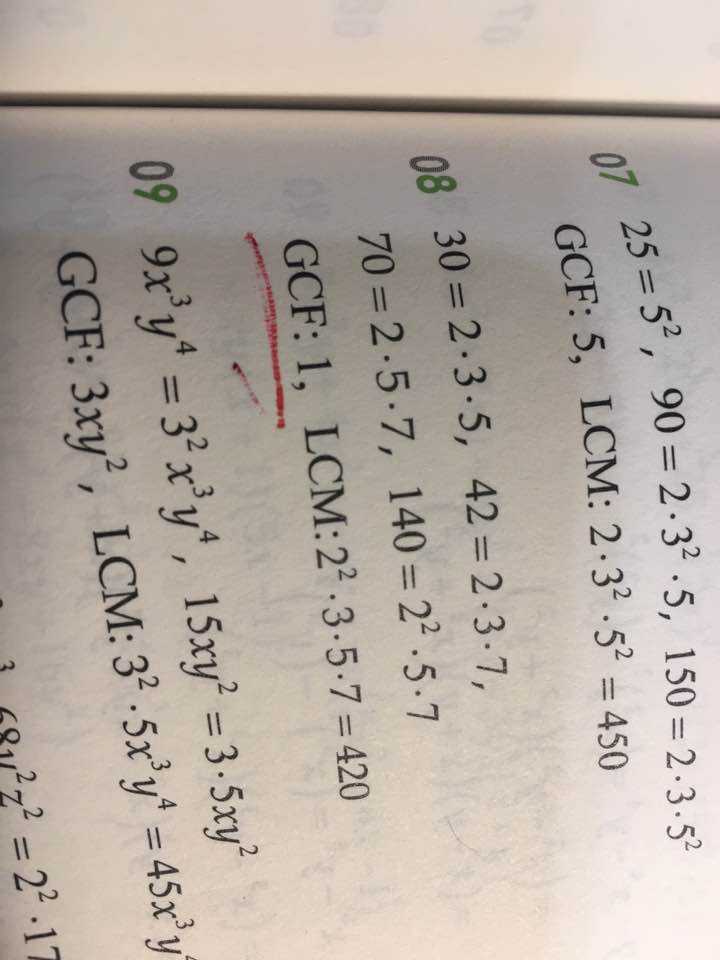 07 25 = 5², 90 = 2·3²·5, 150 = 2·3·5²
GCF: 5, LCM: 2·3²·5² = 450
08 30 = 2·3·5, 42 = 2·3·7,
70 = 2·5·7, 140 = 2²·5·7
GCF: 1, LCM: 2²·3·5·7 = 420
09 9x³y⁴ = 3²x³y⁴, 15xy² = 3·5xy²
GCF: 3xy², LCM: 3²·5x³y⁴ = 45x³y⁴
68y²z² = 2²·17